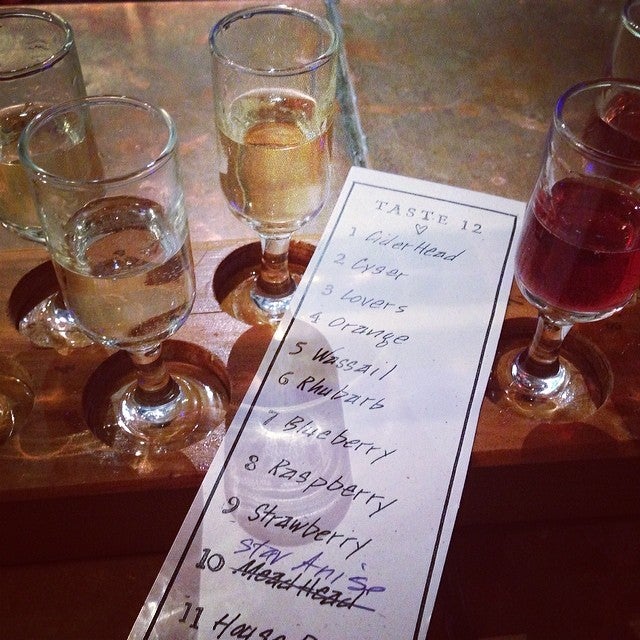 TASTE 12
1 CiderHead
2 Cyser
3 Lovers
4 Orange
5 Wassail
6 Rhubarb
7 Blueberry
8 Raspberry
9 Strawberry
Star Anise
10 MeadHead
11 House